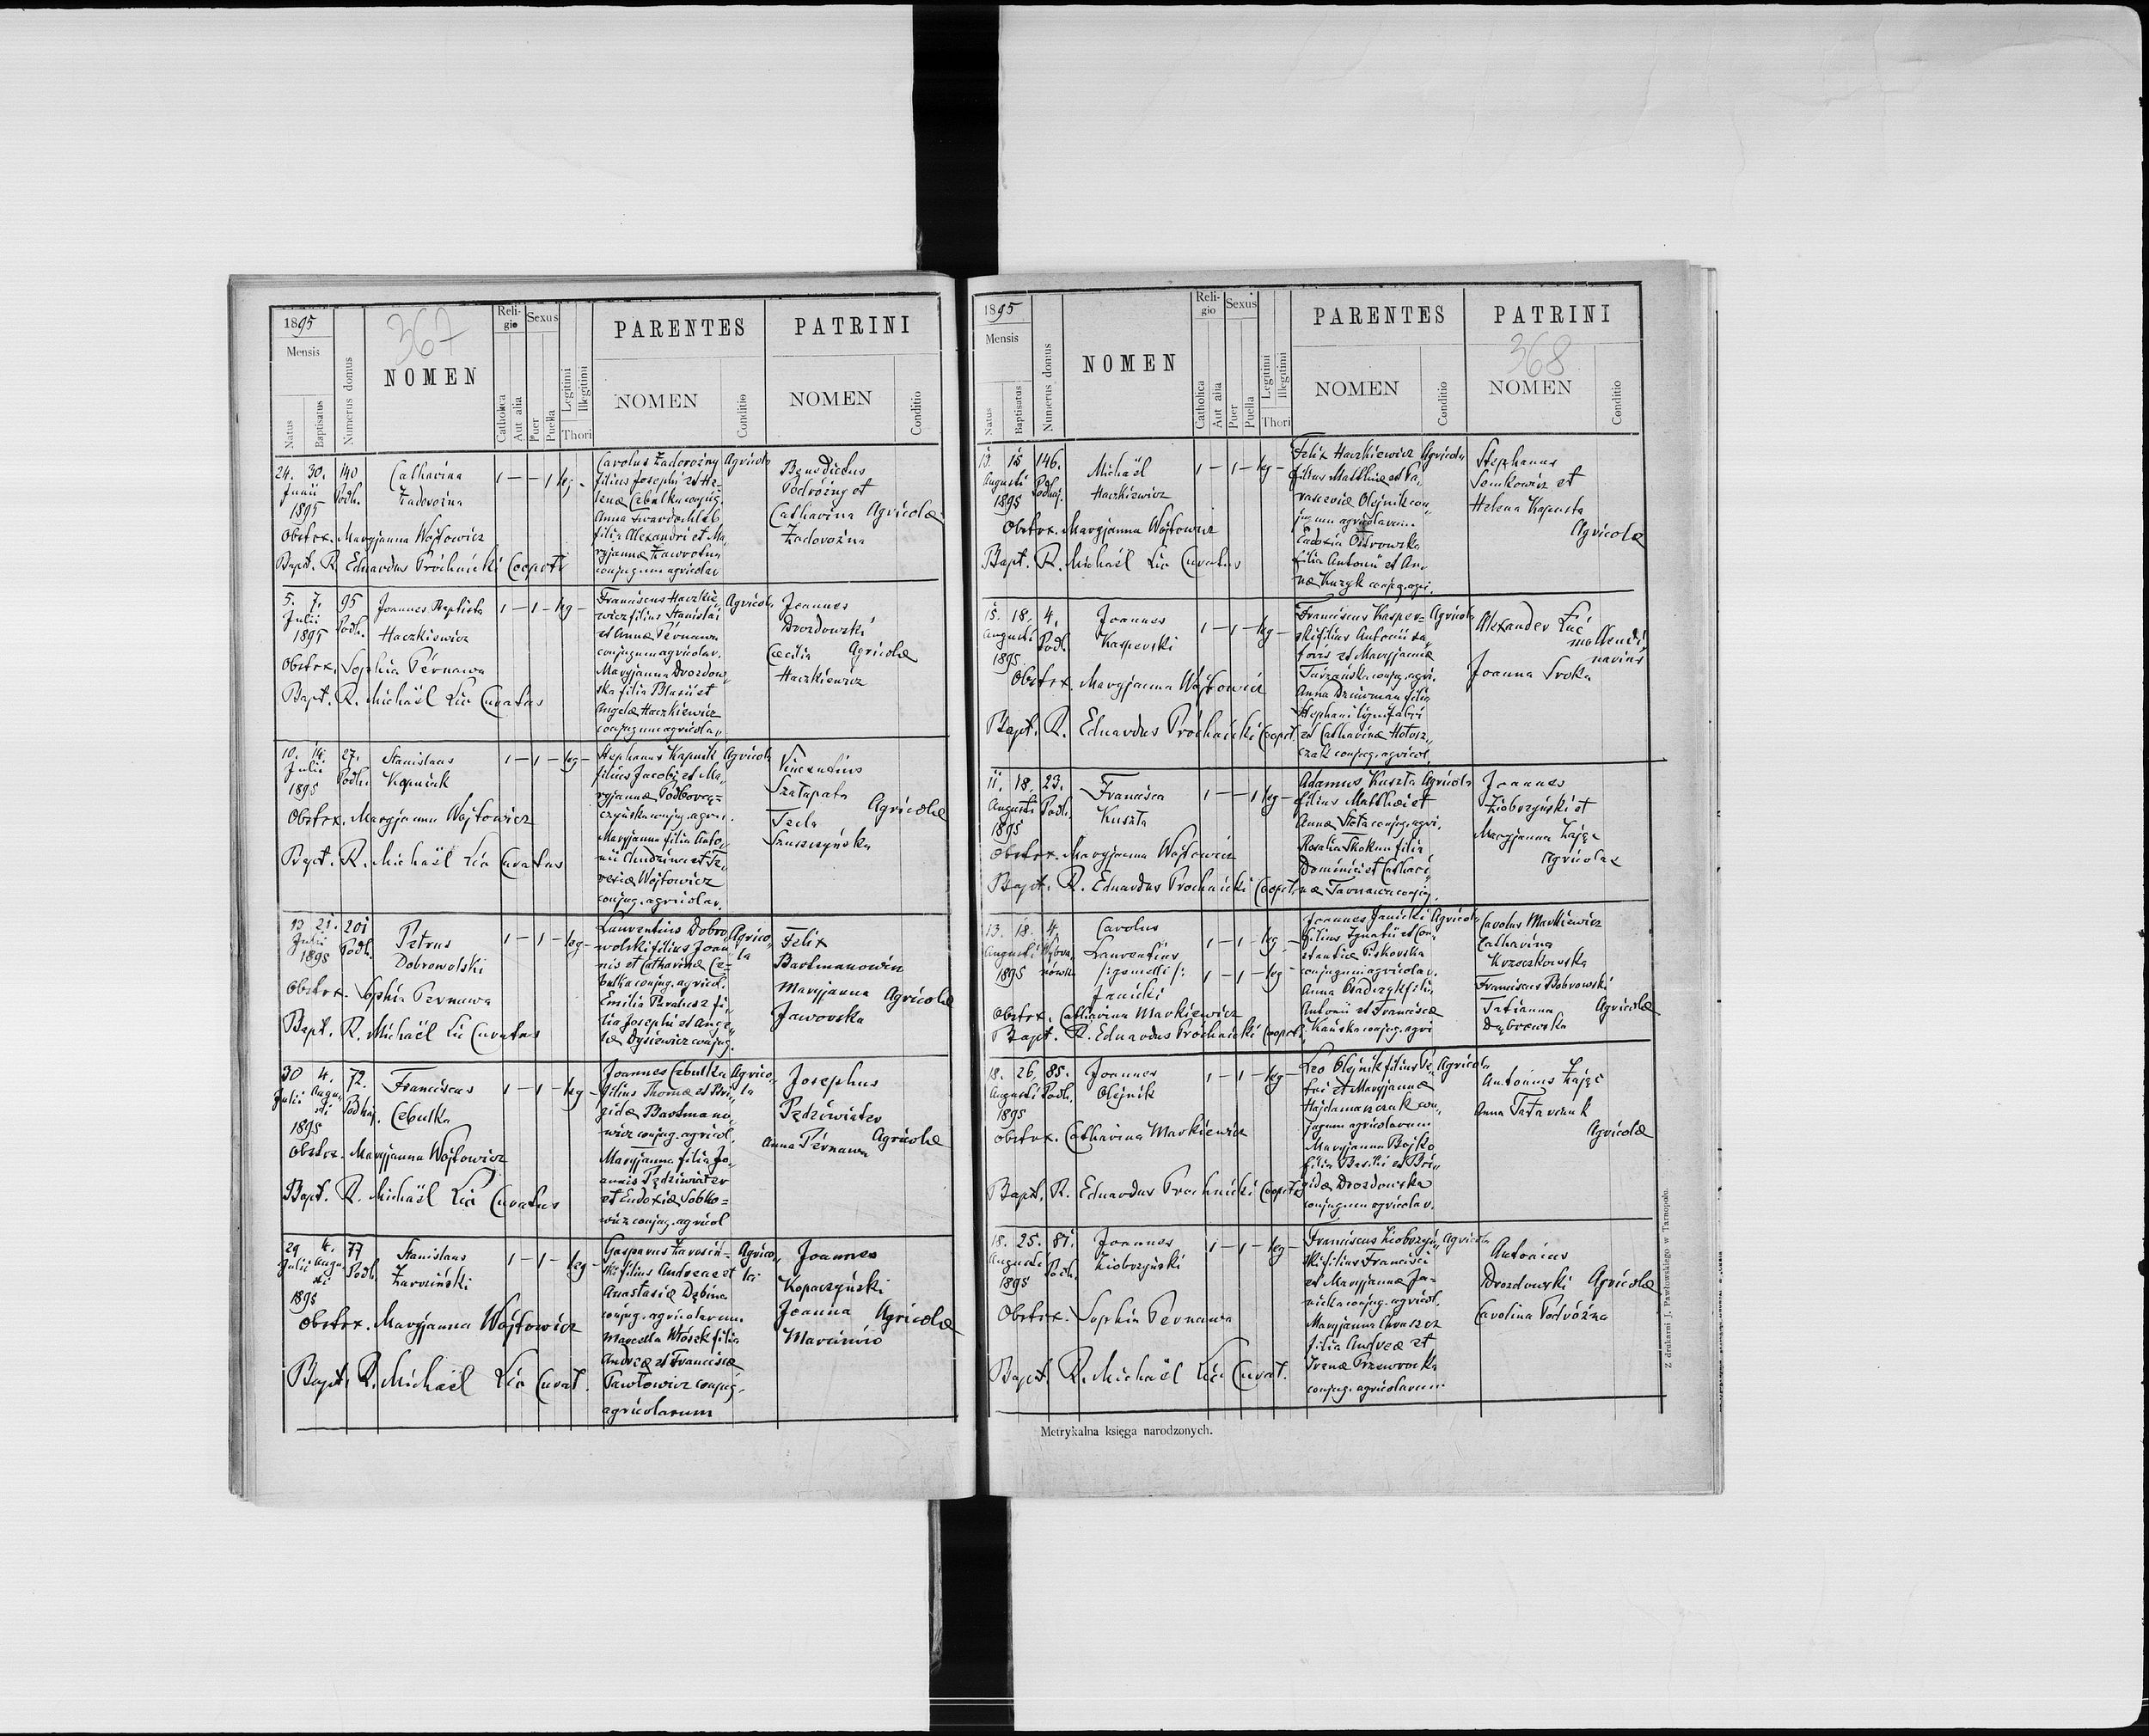 1895
Mensis
Natus
Baptisatus
Numerus domus
367
NOMEN
Religio
Catholica
Aut alia
Sexus
Puer
Puella
Legitimi
Illegitimi
Thori
PARENTES
NOMEN
Conditio
PATRINI
NOMEN
Conditio
24. 30. 140
Junii Podh.
1895
Catharina
Zadorożna
1 — — 1 leg -
Carolus Zadorożny
filius Josephi et He-
lenæ Cebulka conjug.
Anna
filia Alexandri et Ma-
ryjannæ
conjugum agricolar
Agricola
Benedictus
Podróżny et
Catharina Agricolæ
Zadorożna
Obstrx. Maryjanna Wójtowicz
Bapt. R. Eduardus Próchnicki Cooprt.
5. 7. 95
Julii Podh.
1895
Joannes Baptista
Haczkiewicz
1 — 1 — leg -
Franciscus Haczkie-
wicz filius Stanislai
et Annæ Pérnawa
conjugum agricolar.
Maryjanna Drozdow-
ska filia Blasii et
Angelæ Haczkiewicz
conjugum agricolar.
Agricola
Joannes
Drozdowski
Cæcilia Agricolæ
Haczkiewicz
Obstrx. Sophia Pérnawa
Bapt. R. Michaël Lic Curatus
10. 14. 27.
Julii Podh.
1895
Stanislaus
Kapniak
1 — 1 — leg -
Stephanus Kapnik
filius Jacobi et Ma-
ryjannæ
conjug. agri.
Maryjanna filia Anto-
nii et Te-
resiæ Wójtowicz
conjug. agricolar.
Agricola
Vincentius
Szałapata
Tecla Agricolæ
Szuszczyńska
Obstrx. Maryjanna Wójtowicz
Bapt. R. Michaël Lic Curatus
13 21. 201
Julii Podh.
1895
Petrus
Dobrowolski
1 — 1 — leg -
Laurentius Dobro-
wolski filius Joan-
nis et Catharinæ Ce-
bulka conjug. agricol.
Emilia fi-
lia Josephi et Ange-
læ Dysiewicz conjug.
Agrico-
la
Felix
Bartmanowicz
Maryjanna Agricolæ
Jaworska
Obstrx. Sophia Pernawa
Bapt. R. Michaël Lic Curatus
30 4. 72.
Julii Augu- Podhaj.
sti
1895
Franciscus
Cebulka
1 — 1 — leg -
Joannes Cebulka
filius Thomæ et Bri-
gidæ Bartmano-
wicz conjug. agricol.
Maryjanna filia Jo-
annis Pędziwiatr
et Eudoxiæ Sobko-
wicz conjug. agricol
Agrico-
la
Josephus
Pędziwiatr
Anna Pérnawa Agricolæ
Obstrx. Maryjanna Wójtowicz
Bapt. R. Michaël Lic Curatus
29. 4. 77
Julii Augu- Podh.
sti
1895
Stanislaus
Zarwiński
1 — 1 — leg -
Gasparus
ski filius Andreæ et
Anastasiæ Dąbina
conjug. agricolarum
Marcella Włoszk filia
Andreæ et Franciscæ
Pawłowicz conjug.
agricolarum
Agrico-
la
Joannes
Kopaczyński
Joanna Agricolæ
Marciniw
Obstrx. Maryjanna Wójtowicz
Bapt. R. Michaël Lic Curat.
1895
Mensis
Natus
Baptisatus
Numerus domus
NOMEN
Religio
Catholica
Aut alia
Sexus
Puer
Puella
Legitimi
Illegitimi
Thori
PARENTES
NOMEN
Conditio
PATRINI
368
NOMEN
Conditio
13. 15 146.
Augusti Podhaj.
1895
Michaël
Haczkiewicz
1 — 1 — leg -
Felix Haczkiewicz
filius Matthiæ et Pa-
rasceviæ Olejnik con-
jugum agricolarum.
Eudoxia Ostrowska
filia Antonii et An-
næ Kuzyk conjug. agri.
Agricola
Stephanus
Senkowicz et
Helena Kapusta
Agricolæ
Obstrx. Maryjanna Wójtowicz
Bapt. R. Michaël Lic Curatus
15. 18. 4.
Augusti Podh.
1895.
Joannes
Kasperski
1 — 1 — leg -
Franciscus Kasper-
ski filius Antonii
et Maryjannæ
conjug. agri.
Anna Dziurman filia
Stephani lignifabri
et Catharinæ
conjug. agricol.
Agricola
Alexander Łuć
Joanna Sroka
Obstrx. Maryjanna Wójtowicz
Bapt. R. Eduardus Próchnicki Cooprt.
11. 18. 23.
Augusti Podh.
1895
Francisca
Kuszta
1 — — 1 leg -
Adamus Kuszta
filius Matthæi et
Annæ Słota conjug. agri.
Rosalia Skokun filia
Dominici et Cathari-
næ Tarnawa conjug.
Agricola
Joannes
Ziobrzyński et
Maryjanna Zając
Agricolæ
Obstrx. Maryjanna Wójtowicz
Bapt. R. Eduardus Prochnicki Cooprt.
13. 18. 4.
Augusti
1895
Carolus
Laurentius
/:gemelli:/
Janicki
1 — 1 — leg -
1 — 1 — leg -
Joannes Janicki
filius Ignatii et Con-
stantiæ Piskorska
conjugum agricolar.
Anna filia
Antonii et Franciscæ
Kańska conjug. agri
Agricola
Carolus Markiewicz
Catharina
Krzeczkowska
Franciscus Bobrowski
Tatianna Agricolæ
Dąbrowska
Obstrx. Catharina Markiewicz
Bapt. R. Eduardus Próchnicki Cooprt.
18. 26. 85.
Augusti Podh.
1895
Joannes
Olejnik
1 — 1 — leg -
Leo Olejnik filius Pe-
tri et Maryjannæ
Hajdamaszczuk con-
jugum agricolarum
Maryjanna Bojko
filia Basilii et Bri-
gidæ Drozdowska
conjugum agricolar.
Agricola
Antonius Zając
Anna Tatarczuk
Agricolæ
Obstrx. Catharina Markiewicz
Bapt. R. Eduardus Prochnicki Cooprt.
18. 25. 87.
Augusti Podh.
1895
Joannes
Ziobrzyński
1 — 1 — leg -
Franciscus Ziobrzyń-
ski filius Francisci
et Maryjannæ Ja-
nicka conjug. agricol.
Maryjanna Chruszcz
filia Andreæ et
Irenæ Przewrocka
conjug. agricolarum.
Agricola
Antonius
Drozdowski Agricolæ
Carolina Podróżna
Obstrx. Sophia Pernawa
Bapt. R. Michaël Lic Curat.
Metrykalna księga narodzonych.
Z drukarni J. Pawłowskiego w Tarnopolu.